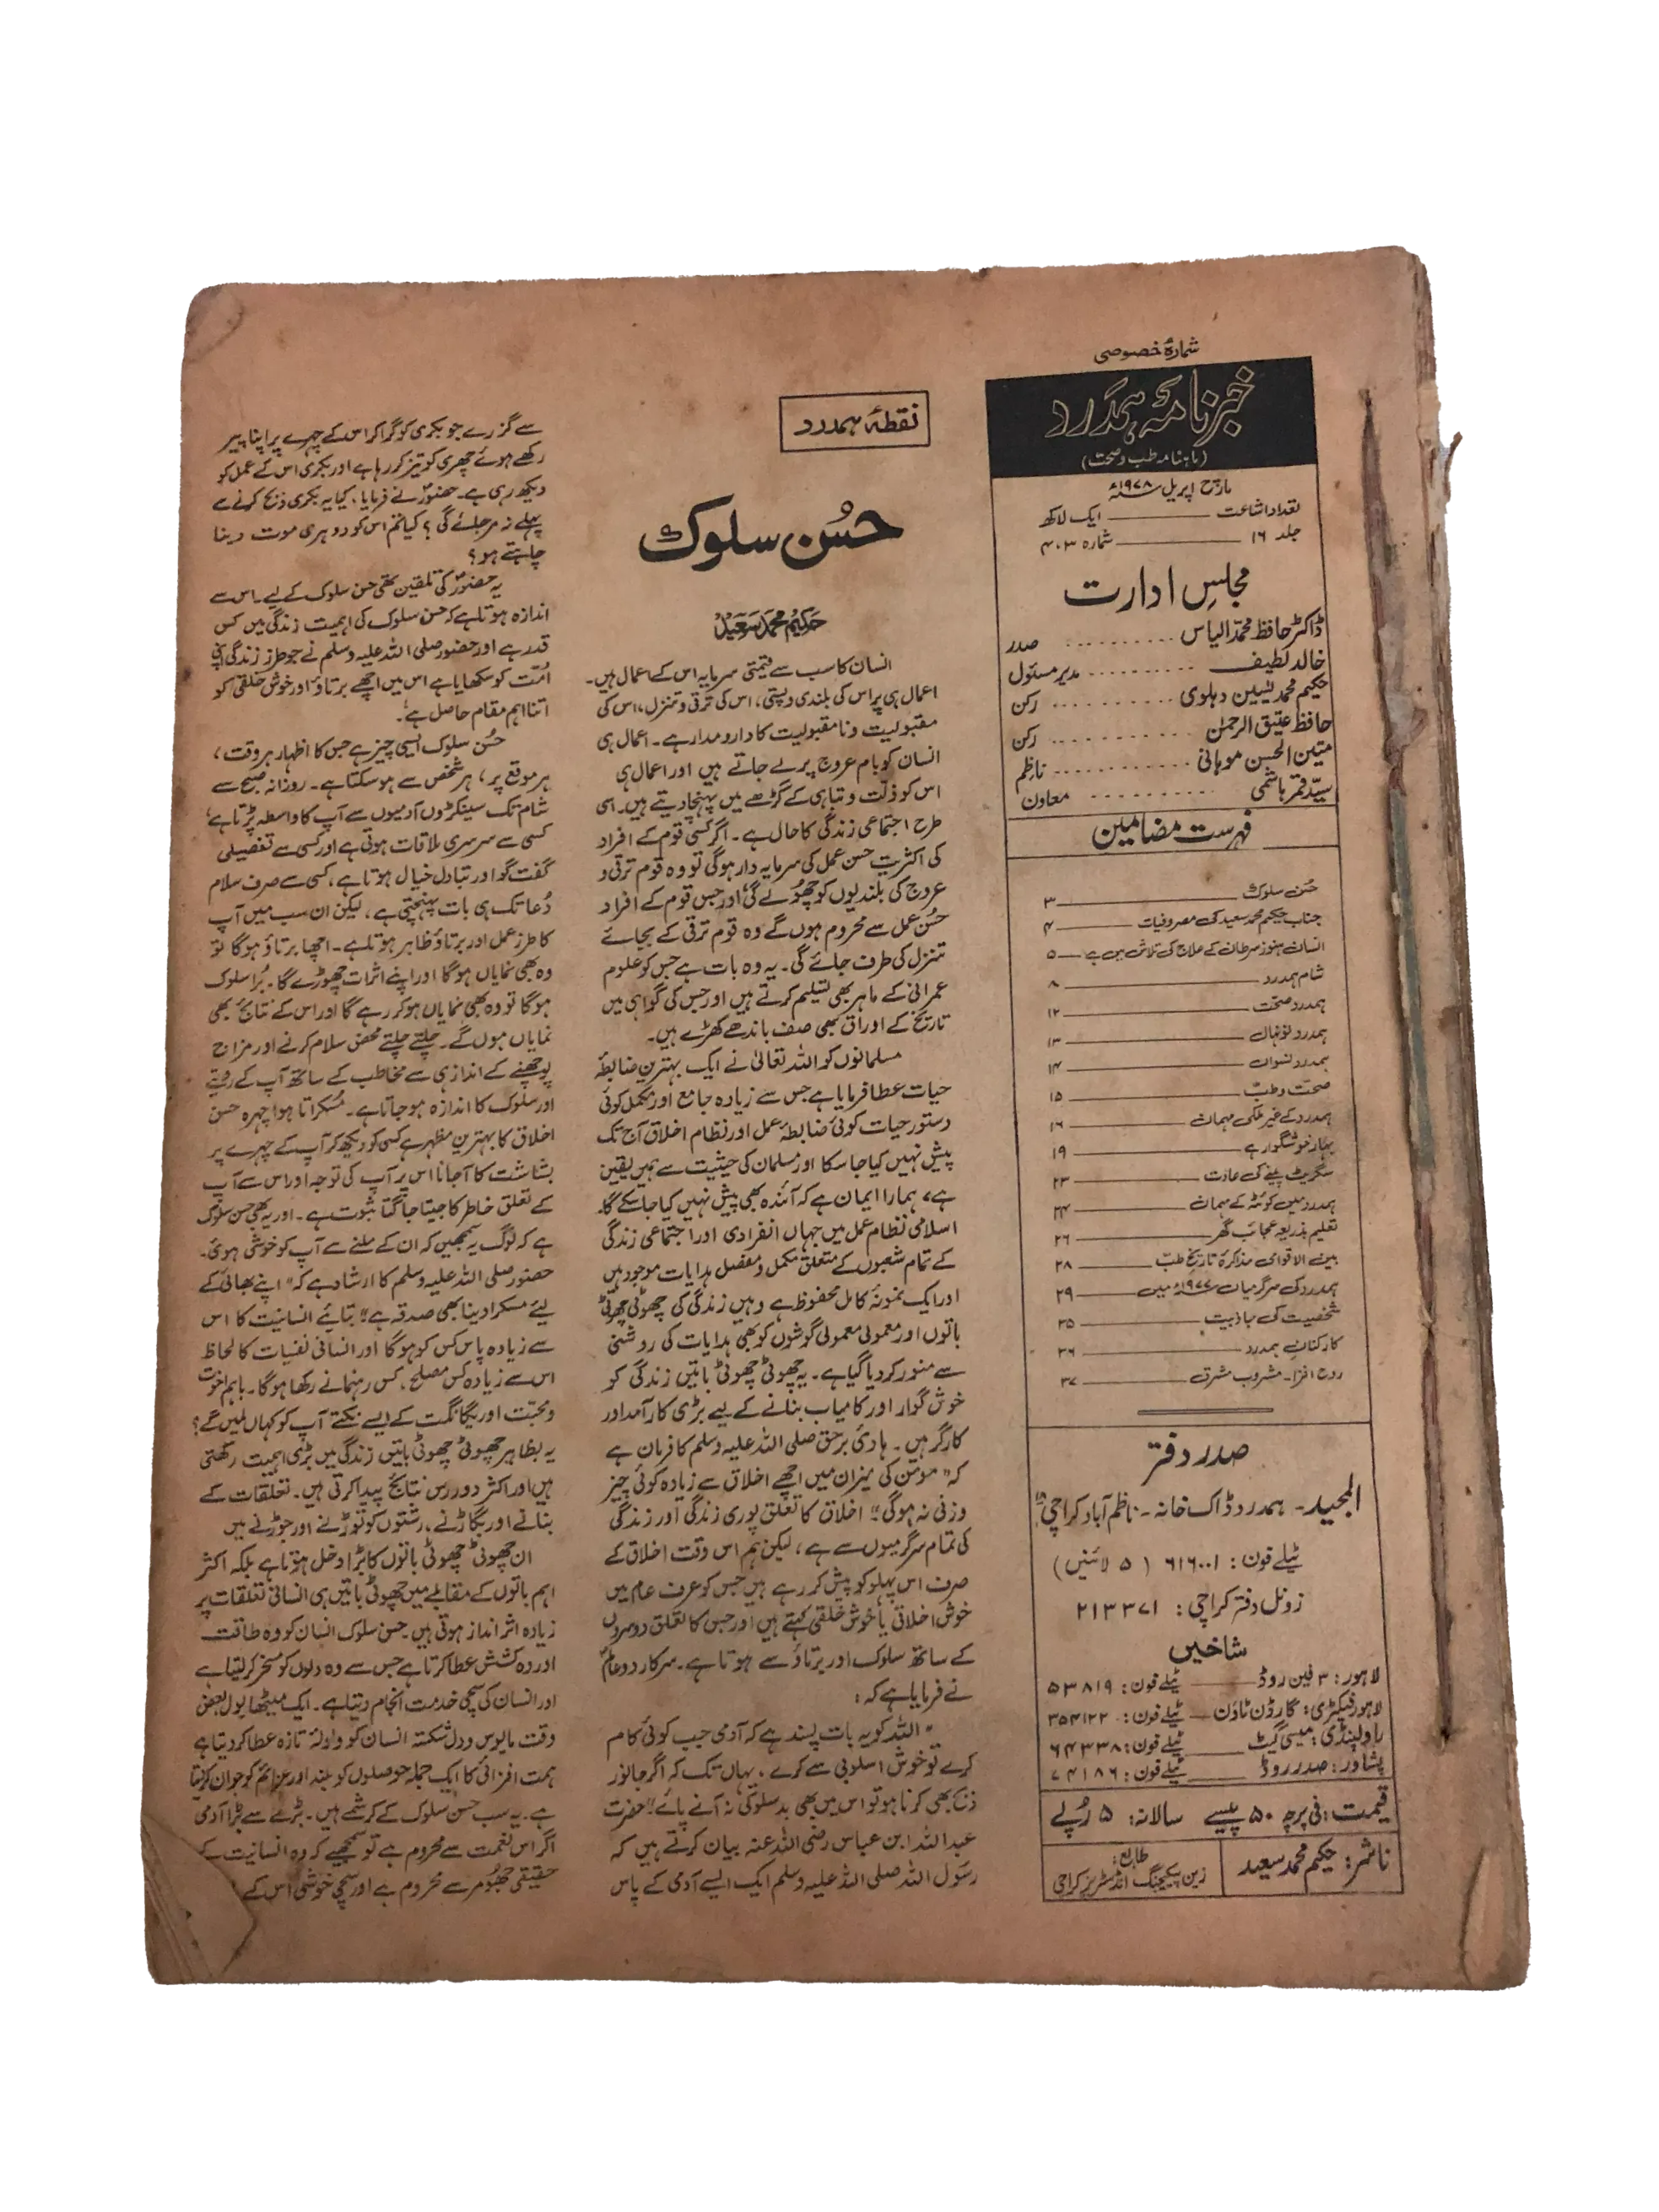 شمارۂ خصوصی
خبرنامۂ ہمدرد
(ماہنامہ طب و صحت)
مارچ اپریل ۱۹۷۸ء
تعداد اشاعت ــــــ ایک لاکھ
جلد ۱۶ ــــــ شمارہ ۳،۴
مجلسِ ادارت
ڈاکٹر حافظ محمد الیاس ........ صدر
خالد لطیف ........ مدیر مسئول
حکیم محمد یٰسین دہلوی ........ رکن
حافظ عتیق الرحمٰن ........ رکن
متین الحسن موہانی ........ ناظم
سیّد قمر ہاشمی ........ معاون
فہرست مضامین
حُسن سلوک ــــــ ۳
جناب حکیم محمد سعید کی مصروفیات ــــــ ۴
انسان ہنوز سرطان کے علاج کی تلاش میں ہے ــــــ ۵
شام ہمدرد ــــــ ۸
ہمدرد صحت ــــــ ۱۲
ہمدرد نونہال ــــــ ۱۳
ہمدرد نسواں ــــــ ۱۴
صحت و طب ــــــ ۱۵
ہمدرد کے غیر ملکی مہمان ــــــ ۱۶
بہار خوشگوار ہے ــــــ ۱۹
سگریٹ پینے کی عادت ــــــ ۲۳
ہمدرد میں کوئٹہ کے مہمان ــــــ ۲۴
تعلیم بذریعہ عجائب گھر ــــــ ۲۶
بین الاقوامی مذاکرۂ تاریخ طب ــــــ ۲۸
ہمدرد کی سرگرمیاں ۱۹۷۷ء میں ــــــ ۲۹
شخصیت کی جاذبیت ــــــ ۳۵
کارکنانِ ہمدرد ــــــ ۳۶
روح افزا۔ مشروب مشرق ــــــ ۳۷
صدر دفتر
المجید۔ ہمدرد ڈاک خانہ۔ ناظم آباد کراچی ۱۸
ٹیلے فون: ۶۱۶۰۰۱ (۵ لائنیں)
زونل دفتر کراچی: ۲۱۳۳۷۱
شاخیں
لاہور: ۳ فین روڈ ــــــ ٹیلے فون: ۵۳۸۱۹
لاہور فیکٹری: گارڈن ٹاؤن ــــــ ٹیلے فون: ۳۵۴۱۲۲
راولپنڈی: میسی گیٹ ــــــ ٹیلے فون: ۶۴۳۳۸
پشاور: صدر روڈ ــــــ ٹیلے فون: ۷۴۱۸۶
قیمت: فی پرچہ ۵۰ پیسے سالانہ: ۵ رُپے
ناشر: حکیم محمد سعید
طابع:
زین پیکیجنگ انڈسٹریز کراچی
نقطۂ ہمدرد
حُسن سلوک
حکیم محمد سعید
انسان کا سب سے قیمتی سرمایہ اس کے اعمال ہیں۔
اعمال ہی پر اس کی بلندی و پستی، اس کی ترقی و تنزل، اس کی
مقبولیت و نا مقبولیت کا دارومدار ہے۔ اعمال ہی
انسان کو بام عروج پر لے جاتے ہیں اور اعمال ہی
اس کو ذلّت و تباہی کے گڑھے میں پہنچا دیتے ہیں۔ اسی
طرح اجتماعی زندگی کا حال ہے۔ اگر کسی قوم کے افراد
کی اکثریت حسن عمل کی سرمایہ دار ہوگی تو وہ قوم ترقی و
عروج کی بلندیوں کو چھولے گی اور جس قوم کے افراد
حُسن عمل سے محروم ہوں گے وہ قوم ترقی کے بجائے
تنزل کی طرف جائے گی۔ یہ وہ بات ہے جس کو علوم
عمرانی کے ماہر بھی تسلیم کرتے ہیں اور جس کی گواہی میں
تاریخ کے اوراق بھی صف باندھے کھڑے ہیں۔
مسلمانوں کو اللہ تعالیٰ نے ایک بہترین ضابطۂ
حیات عطا فرمایا ہے جس سے زیادہ جامع اور مکمل کوئی
دستور حیات کوئی ضابطۂ عمل اور نظام اخلاق آج تک
پیش نہیں کیا جا سکا اور مسلمان کی حیثیت سے ہمیں یقین
ہے، ہمارا ایمان ہے کہ آئندہ بھی پیش نہیں کیا جاسکے گا۔
اسلامی نظام عمل میں جہاں انفرادی اور اجتماعی زندگی
کے تمام شعبوں کے متعلق مکمل و مفصل ہدایات موجود ہیں
اور ایک نمونۂ کامل محفوظ ہے وہیں زندگی کی چھوٹی چھوٹی
باتوں اور معمولی معمولی گوشوں کو بھی ہدایات کی روشنی
سے منور کر دیا گیا ہے۔ یہ چھوٹی چھوٹی باتیں زندگی کو
خوش گوار اور کامیاب بنانے کے لیے بڑی کارآمد اور
کارگر ہیں۔ ہادیٔ برحق صلی اللہ علیہ وسلم کا فرمان ہے
کہ "مومن کی میزان میں اچھے اخلاق سے زیادہ کوئی چیز
وزنی نہ ہوگی" اخلاق کا تعلق پوری زندگی اور زندگی
کی تمام سرگرمیوں سے ہے، لیکن ہم اس وقت اخلاق کے
صرف اس پہلو کو پیش کر رہے ہیں جس کو عرف عام میں
خوش اخلاقی یا خوش خلقی کہتے ہیں اور جس کا تعلق دوسروں
کے ساتھ سلوک اور برتاؤ سے ہوتا ہے۔ سرکار دو عالمؐ
نے فرمایا ہے کہ:
"اللہ کو یہ بات پسند ہے کہ آدمی جب کوئی کام
کرے تو خوش اسلوبی سے کرے، یہاں تک کہ اگر جانور
ذبح بھی کرنا ہو تو اس میں بھی بدسلوکی نہ آنے پائے" حضرت
عبداللہ ابن عباس رضی اللہ عنہ بیان کرتے ہیں کہ
رسول اللہ صلی اللہ علیہ وسلم ایک ایسے آدمی کے پاس
سے گزرے جو بکری کو گرا کر اس کے چہرے پر اپنا پیر
رکھے ہوئے چھری کو تیز کر رہا ہے اور بکری اس کے عمل کو
دیکھ رہی ہے۔ حضورؐ نے فرمایا، کیا یہ بکری ذبح کرنے سے
پہلے نہ مرجائے گی؟ کیا تم اس کو دوہری موت دینا
چاہتے ہو؟
یہ حضورؐ کی تلقین تھی حسن سلوک کے لیے۔ اس سے
اندازہ ہوتا ہے کہ حسن سلوک کی اہمیت زندگی میں کس
قدر ہے اور حضور صلی اللہ علیہ وسلم نے جو طرز زندگی اپنی
اُمّت کو سکھایا ہے اس میں اچھے برتاؤ اور خوش خلقی کو
اتنا اہم مقام حاصل ہے۔
حُسن سلوک ایسی چیز ہے جس کا اظہار ہر وقت،
ہر موقع پر، ہر شخص سے ہو سکتا ہے۔ روزانہ صبح سے
شام تک سینکڑوں آدمیوں سے آپ کا واسطہ پڑتا ہے،
کسی سے سرسری ملاقات ہوتی ہے اور کسی سے تفصیلی
گفت گو اور تبادل خیال ہوتا ہے، کسی سے صرف سلام
دُعا تک ہی بات پہنچتی ہے، لیکن ان سب میں آپ
کا طرز عمل اور برتاؤ ظاہر ہوتا ہے۔ اچھا برتاؤ ہوگا تو
وہ بھی نمایاں ہوگا اور اپنے اثرات چھوڑے گا۔ بُرا سلوک
ہوگا تو وہ بھی نمایاں ہو کر رہے گا اور اس کے نتائج بھی
نمایاں ہوں گے۔ چلتے چلتے محض سلام کرنے اور مزاج
پوچھنے کے انداز ہی سے مخاطب کے ساتھ آپ کے رویّے
اور سلوک کا اندازہ ہو جاتا ہے۔ مُسکراتا ہوا چہرہ حسن
اخلاق کا بہترین مظہر ہے کسی کو دیکھ کر آپ کے چہرے پر
بشاشت کا آجانا اس پر آپ کی توجہ اور اس سے آپ
کے تعلق خاطر کا جیتا جاگتا ثبوت ہے۔ اور یہ بھی حسن سلوک
ہے کہ لوگ یہ سمجھیں کہ ان کے ملنے سے آپ کو خوشی ہوئی۔
حضور صلی اللہ علیہ وسلم کا ارشاد ہے کہ "اپنے بھائی کے
لیے مسکرا دینا بھی صدقہ ہے" بتائیے انسانیت کا اس
سے زیادہ پاس کس کو ہوگا اور انسانی نفسیات کا لحاظ
اس سے زیادہ کس مصلح، کس رہنما نے رکھا ہوگا۔ باہم اخوت
و محبت اور یگانگت کے ایسے نکتے آپ کو کہاں ملیں گے؟
یہ بظاہر چھوٹی چھوٹی باتیں زندگی میں بڑی اہمیت رکھتی
ہیں اور اکثر دوررس نتائج پیدا کرتی ہیں۔ تعلقات کے
بنانے اور بگاڑنے، رشتوں کو توڑنے اور جوڑنے میں
ان چھوٹی چھوٹی باتوں کا بڑا دخل ہوتا ہے بلکہ اکثر
اہم باتوں کے مقابلے میں چھوٹی باتیں ہی انسانی تعلقات پر
زیادہ اثر انداز ہوتی ہیں۔ حسن سلوک انسان کو وہ طاقت
اور وہ کشش عطا کرتا ہے جس سے وہ دلوں کو مسخر کر لیتا ہے
اور انسان کی سچی خدمت انجام دیتا ہے۔ ایک میٹھا بول بعض
وقت مایوس و دل شکستہ انسان کو ولولۂ تازہ عطا کر دیتا ہے
ہمت افزائی کا ایک جملہ حوصلوں کو بلند اور عزائم کو جوان کر دیتا
ہے۔ یہ سب حسن سلوک کے کرشمے ہیں۔ بڑے سے بڑا آدمی
اگر اس نعمت سے محروم ہے تو سمجھیے کہ وہ انسانیت کے
حقیقی جھومر سے محروم ہے اور سچی خوشی اس کے